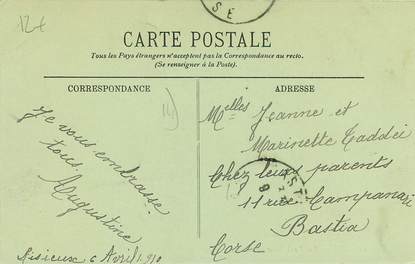 12 €
SE
CARTE POSTALE
Tous les Pays étrangers n'acceptent pas la Correspondance au recto.
(Se renseigner à la Poste).
CORRESPONDANCE
ADRESSE
Je vous embrasse
tous.
Augustine
Lisieux 6 Avril 1910
Melles Jeanne et
Marinette Taddei
Chez leurs parents
11 rue Campanari
Bastia
Corse